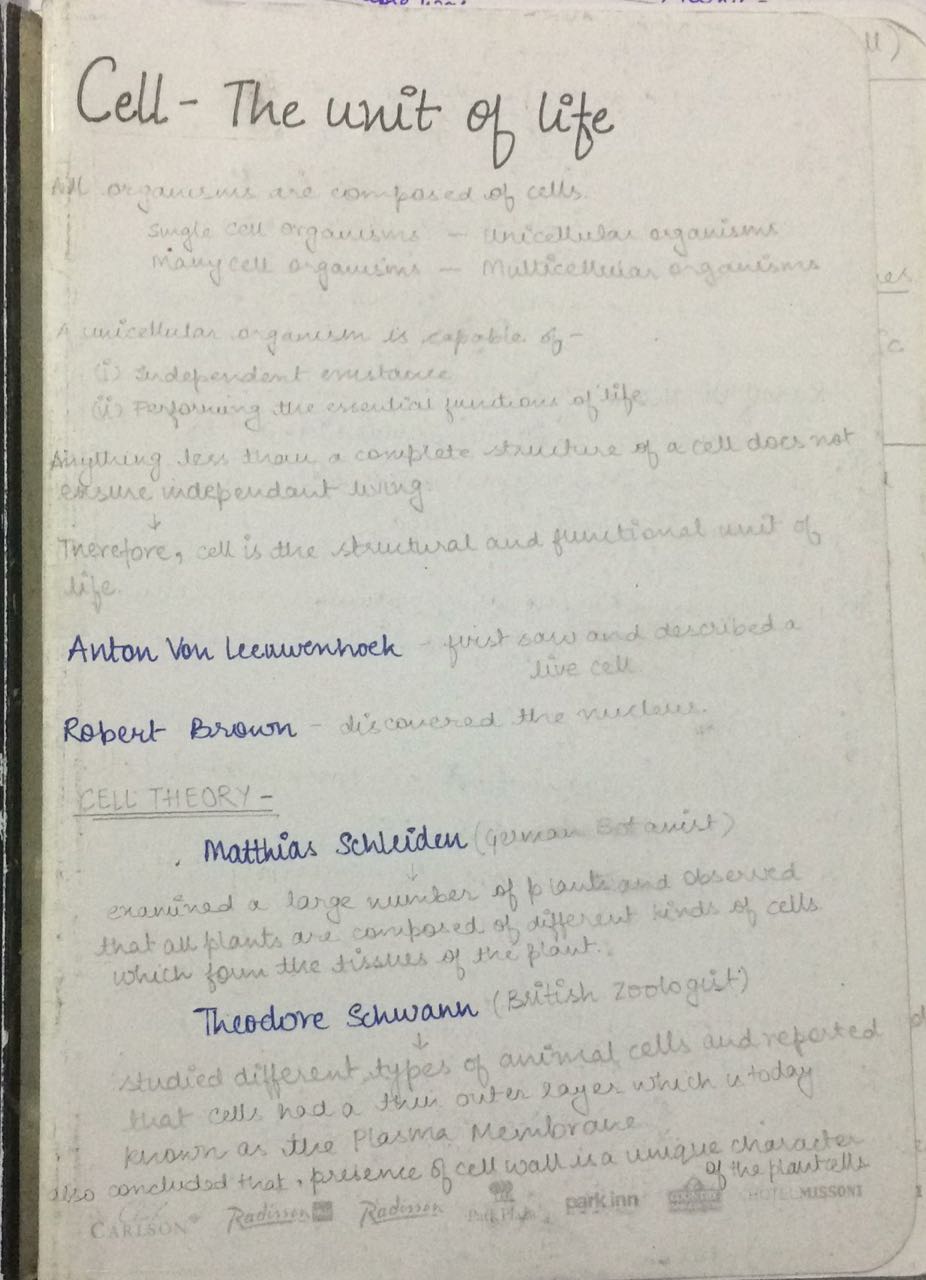 Cell - The unit of life
All organisms are composed of cells.
Single cell organisms - Unicellular organisms
Many cell organisms - Multicellular organisms
A unicellular organism is capable of -
(i) Independent existance
(ii) Performing the essential functions of life
Anything less than a complete structure of a cell does not
ensure independant living.
↓
Therefore, cell is the structural and functional unit of
life.
Anton Von Leeuwenhoek - first saw and described a
live cell
Robert Brown - discovered the nucleus.
CELL THEORY -
Matthias Schleiden (German Botanist)
↓
examined a large number of plants and observed
that all plants are composed of different kinds of cells
which form the tissues of the plant.
Theodore Schwann (British Zoologist)
↓
studied different types of animal cells and reported
that cells had a thin outer layer which is today
known as the Plasma Membrane
also concluded that, presence of cell wall is a unique character
of the plant cells
CARLSON Radisson Radisson Park Plaza park inn HOTEL MISSONI